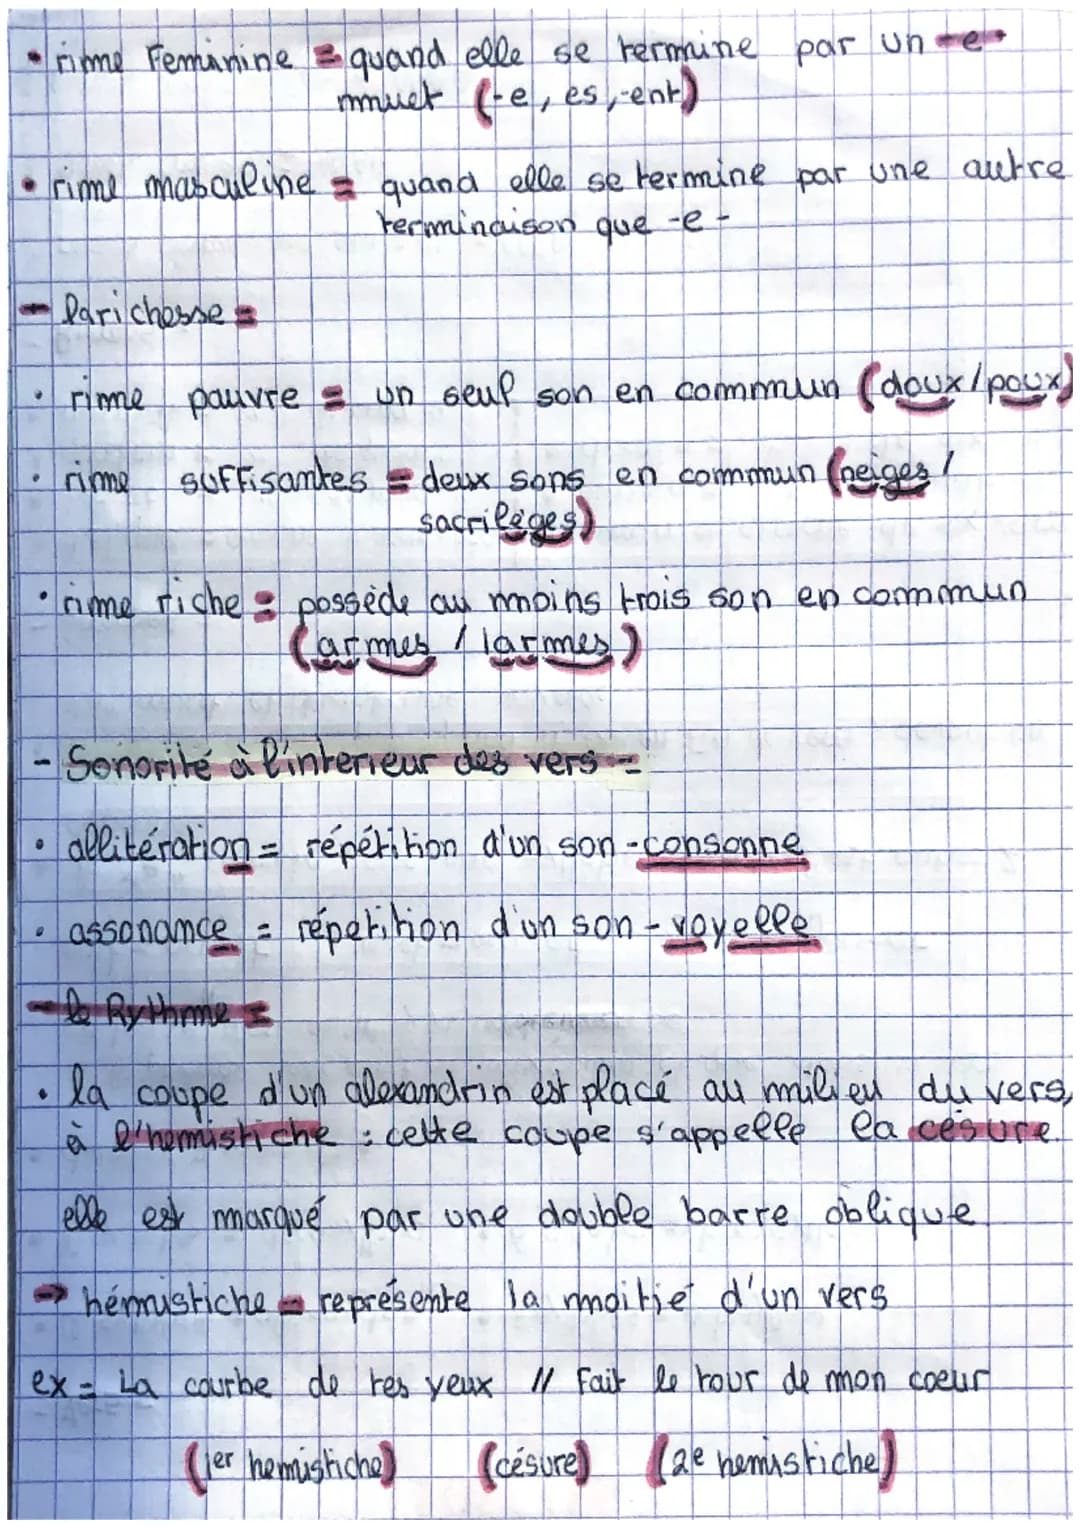 • rime Feminine = quand elle se termine par un -e-
mmuet (-e, es, -ent)
• rime masculine = quand elle se termine par une autre
terminaison que -e-
- la richesse =
• rime pauvre = un seul son en commun (doux/poux)
• rime suffisantes = deux sons en commun (neiges /
sacrilèges)
• rime riche = possède au moins trois son en commun
(armes / larmes)
- Sonorité à l'interieur des vers =
• allitération = répétition d'un son -consonne
• assonance = répetition d'un son - voyelle
- le Rythme =
• la coupe d'un alexandrin est placé au milieu du vers,
à l'hemistiche : cette coupe s'appelle la césure.
elle est marqué par une double barre oblique
→ hémistiche = représente la moitié d'un vers
ex = La courbe de tes yeux // Fait le tour de mon coeur
(1er hemistiche) (césure) (2e hemistiche)